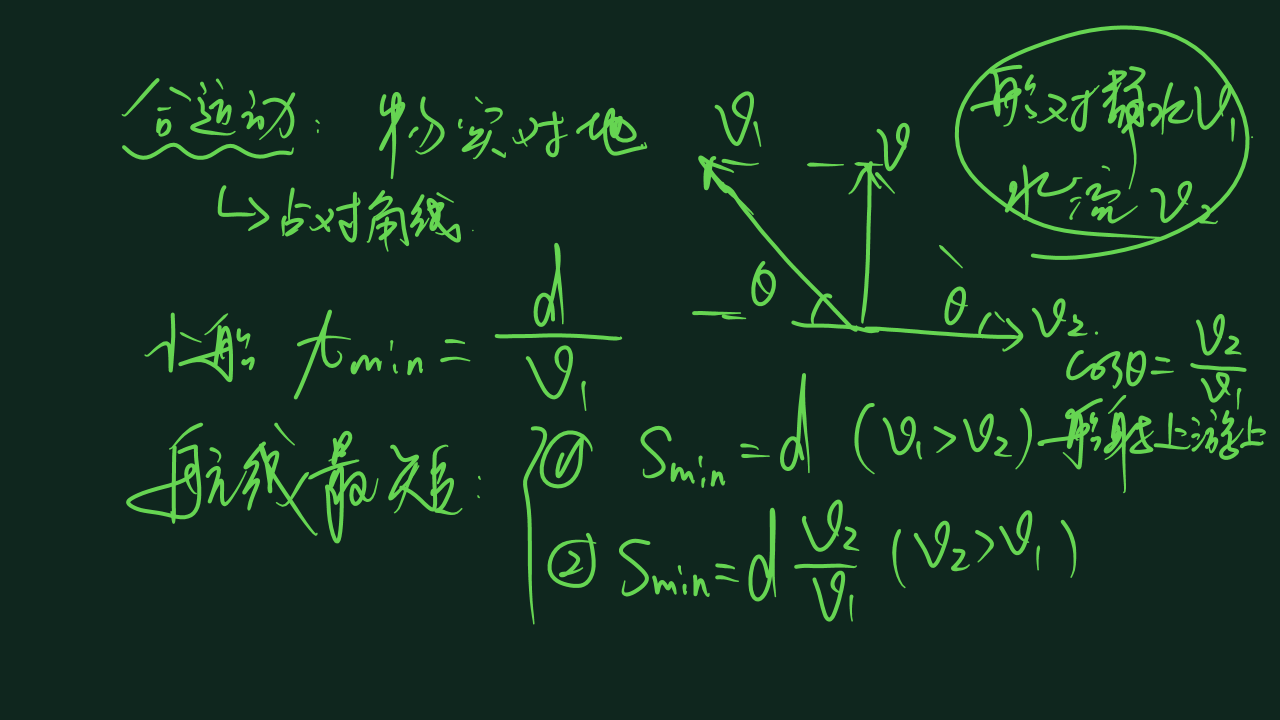 合运动: 物实对地
↳占对角线
v₁
v
船对静水v₁
水流 v₂
θ
θ
v₂.
cosθ = v₂/v₁
小船 t_min = d/v₁
航线最短: ① S_min = d (v₁>v₂) 船射上游上
② S_min = d v₂/v₁ (v₂>v₁)